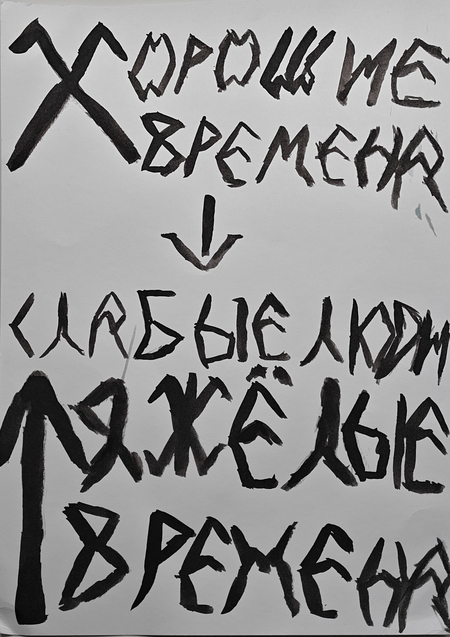 ХОРОШИЕ
ВРЕМЕНА
↓
СЛАБЫЕ ЛЮДИ
ТЯЖЁЛЫЕ
ВРЕМЕНА